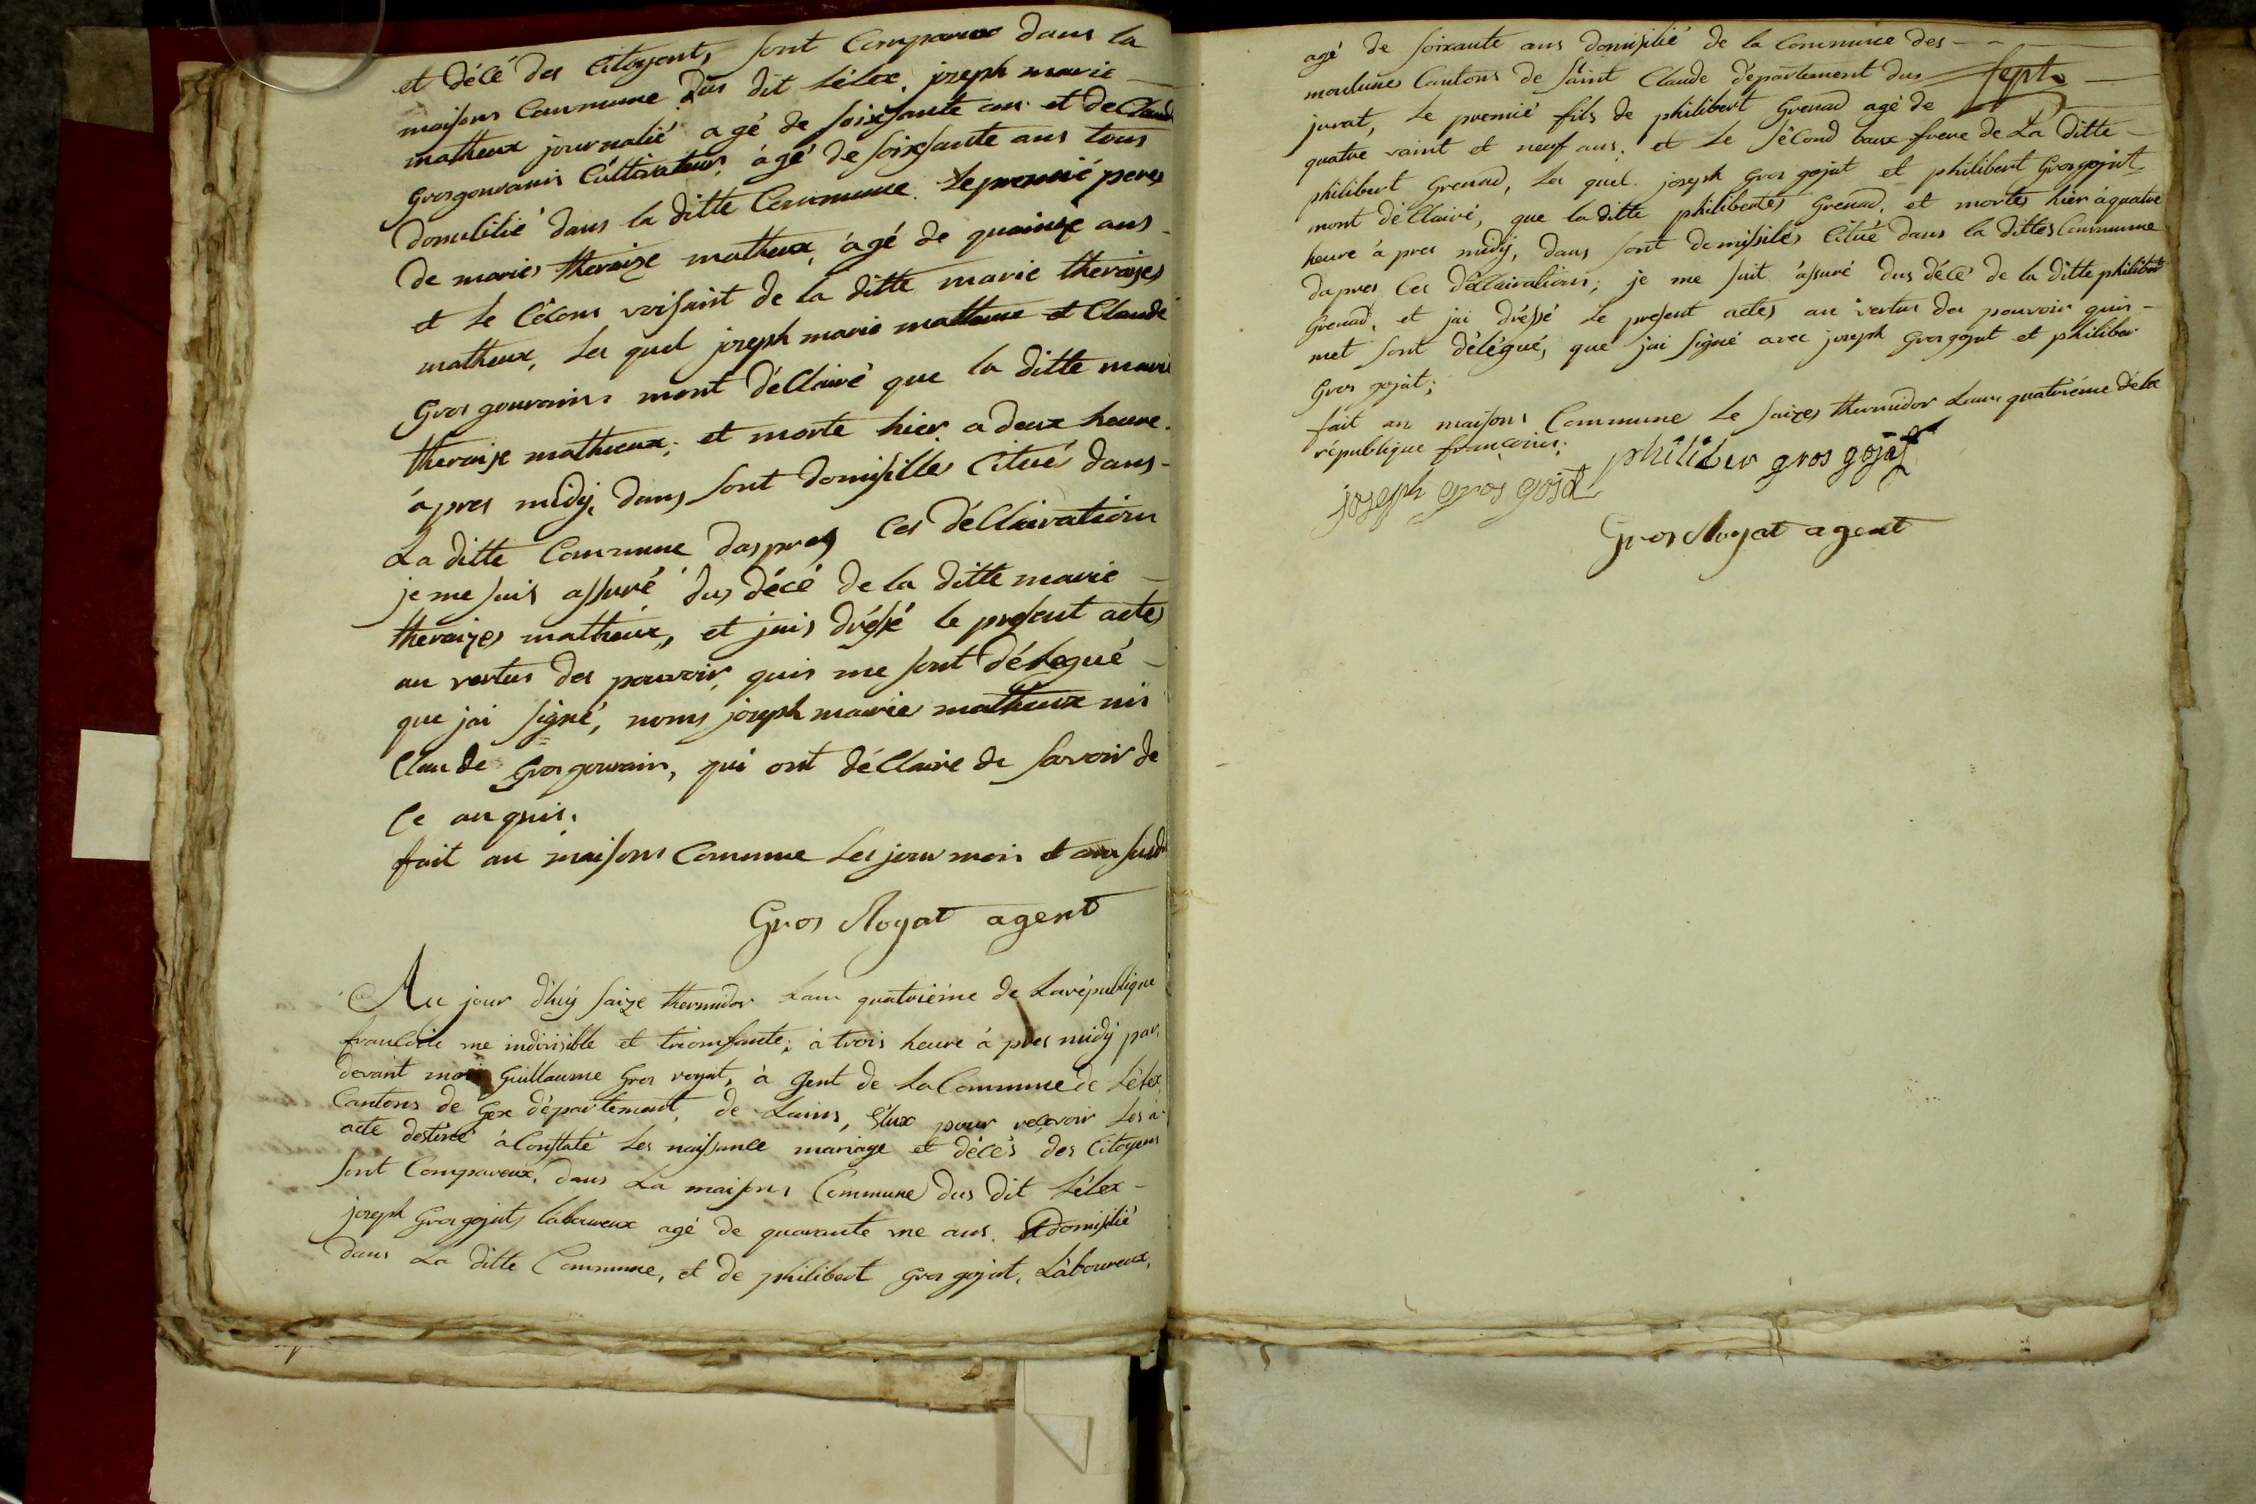 et décé des Citoyent, sont Comparux dans la
maisons Commune dus dit Lélex, joseph marie
matheux journalié agé de soixsante an et de Claude
Grosgouvanis Cultivateur, agé de soixsante ans tous
domulilié dans la ditte Commune. Le premié peres
de maries theraize matheux, agé de quainze ans
et le Cécons voisaint de la ditte marie theraizes
matheux, les quel joseph marie matheux et Claude
Gros gouvains mont déClairé que la ditte marie
theraize matheux; et morte hier a deux heure
áprer midÿ, dans sont domisille Citué dans
La ditte Commune daspres Ces déClairations
je me suis assuré dus décé de la ditte marie
theraizes matheux, et jais dréssé le present actes
au vertus des pouvoir quis me sont délegué
que jai signé, noms joseph mairie matheux nis
Claude Grosgouvain, qui ont déClaire de savoir de
Ce an quis.
fait an maisons Commune les jour mois et ans susdit
Gros Royat agent
Au jour dhuÿ saize thermidor Lan quatriéme de Larépublique
francoise une indivisible et triomfante; à trois heure à pres midÿ par
devant moi Guillaume Gros royat, à Gent de la Commune de Lélex
Cantons de Gex département de Lains, élux pour recevoir les à
acte destiné à Constaté les naissance mariage et décés des Citoyens
sont Compareux, dans La maisons Commune dus dit Lélex
joseph Grosgojat laboureux agé de quarante une ans. domisilié
dans La ditte Commune, et de philibert Gros gojat, Laboureux,
agé de soixante ans domisilié de la Commune des
moulune Cantons de Saint Claude département dus sept
jurat, Le premié fils de philibert Grenad agé de
quatre vaint et neuf ans; et Le sécond baux freve de La ditte
philibert Grenad, Les quel joseph Gros gojat et philibert Grosgojat
mont déClairé, que la ditte philibertes Grenad, et mortes hier áquatre
heure à pres midÿ, dans sont domisiles Citué dans la dittes Commune
dapres Ces déClairations; je me suit assuré dus décé de la ditte philibert
Grenad, et jai dréssé le present actes au vertus des pouvoir quis
met sont délégué, que jai signé avec joseph Grosgojat et philiber
Gros gojat;
fait an maisons Commune le saizes thermidor Lans quatriéme déla
république françoise;
philiber gros gojat
joseph gros gojat
Gros Royat agent